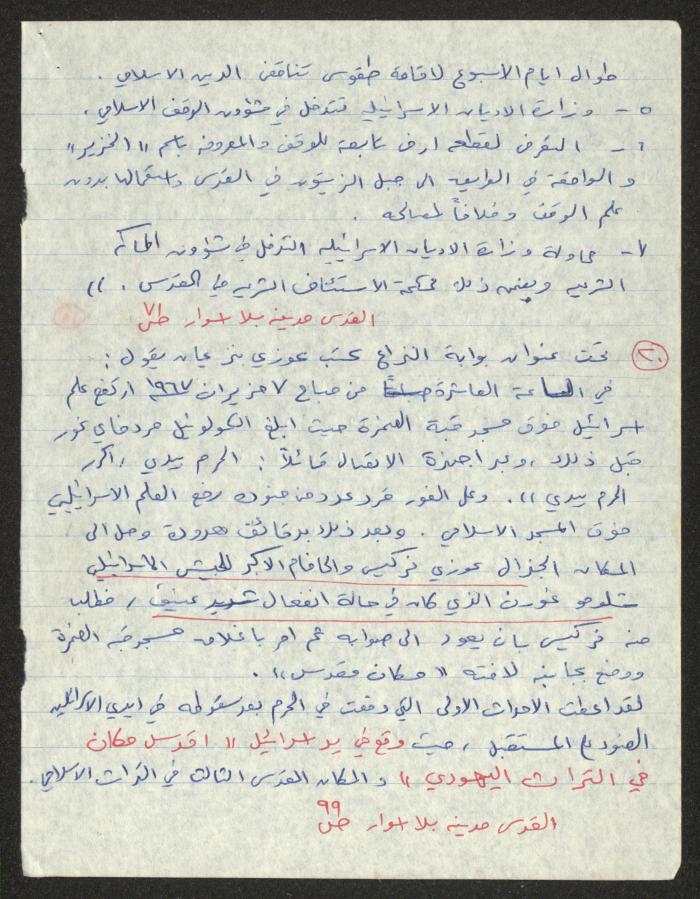 طوال ايام الاسبوع لاقامة طقوس تناقض الدين الاسلامي .
٥- وزارة الاديان الاسرائيلية تتدخل في شؤون الوقف الاسلامي .
٦- التعرض لقطعه ارض تابعة للوقف والمعروفه باسم " الخزير "
والواقعة في الطريق الى جبل الزيتون في القدس واستعمالها بدون
علم الوقف وخلافاً لمصالحه .
٧- محاولة وزارة الاديان الاسرائيليه التدخل في شؤون المحاكم
الشرعيه وبضمن ذلك محكمة الاستئناف الشرعيه في القدس . ))
القدس مدينه بلا اسوار ص ٧٨
٢٠ تحت عنوان بوابة النزاع كتب عوزي بنزيمان يقول :
في الساعة العاشرة من صباح ٧ حزيران ١٩٦٧ ارتفع علم
اسرائيل فوق مسجد قبة الصخرة حيث ابلغ الكولونيل مردخاي غور
قبل ذلك ، وعبر اجهزة الاتصال قائلاً : الحرم بيدي ، اكرر
الحرم بيدي )) . وعلى الفور قرر عدد من جنوده رفع العلم الاسرائيلي
فوق المسجد الاسلامي . وبعد ذلك بدقائق معدودة وصل الى
المكان الجنرال عوزي نركيس والحاخام الاكبر للجيش الاسرائيلي
شلومو غورن الذي كان في حالة انفعال شديد عنيف ، فطلب
منه نركيس بان يعود الى صوابه ثم امر باغلاق مسجد قبة الصخرة
ووضع بجانبه لافته " مكان مقدس " .
لقد اعطت الاحداث الاولى التي وقعت في الحرم بعد سقوطه في ايدي الاسرائيليين
النموذج المستقبل ، حيث وقع في يد اسرائيل " اقدس مكان
في التراث اليهودي " والمكان المقدس الثالث في التراث الاسلامي .
القدس مدينه بلا اسوار ص ٩٩